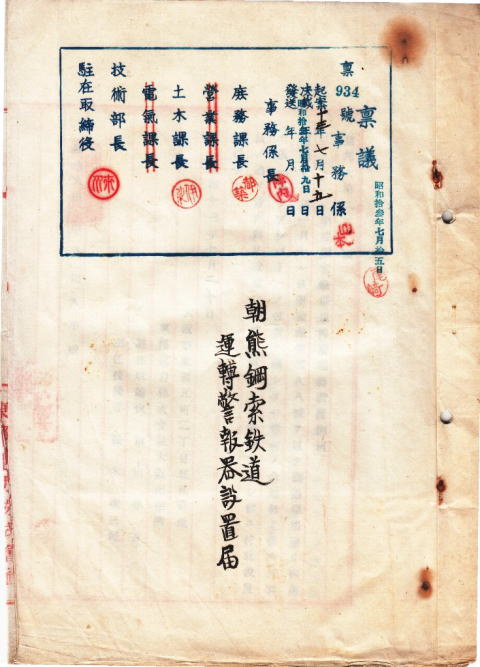 稟議
稟
934
號
事務係
昭和拾叁年七月拾五日
起案十三年七月十五日
決裁昭和拾叁年七月拾九日
發送 年 月 日
事務係長
庶務課長
都築
營業課長
土木課長
電氣課長
技術部長
駐在取締役
尾崎
山本
朝熊鋼索鉄道
運轉警報器設置届